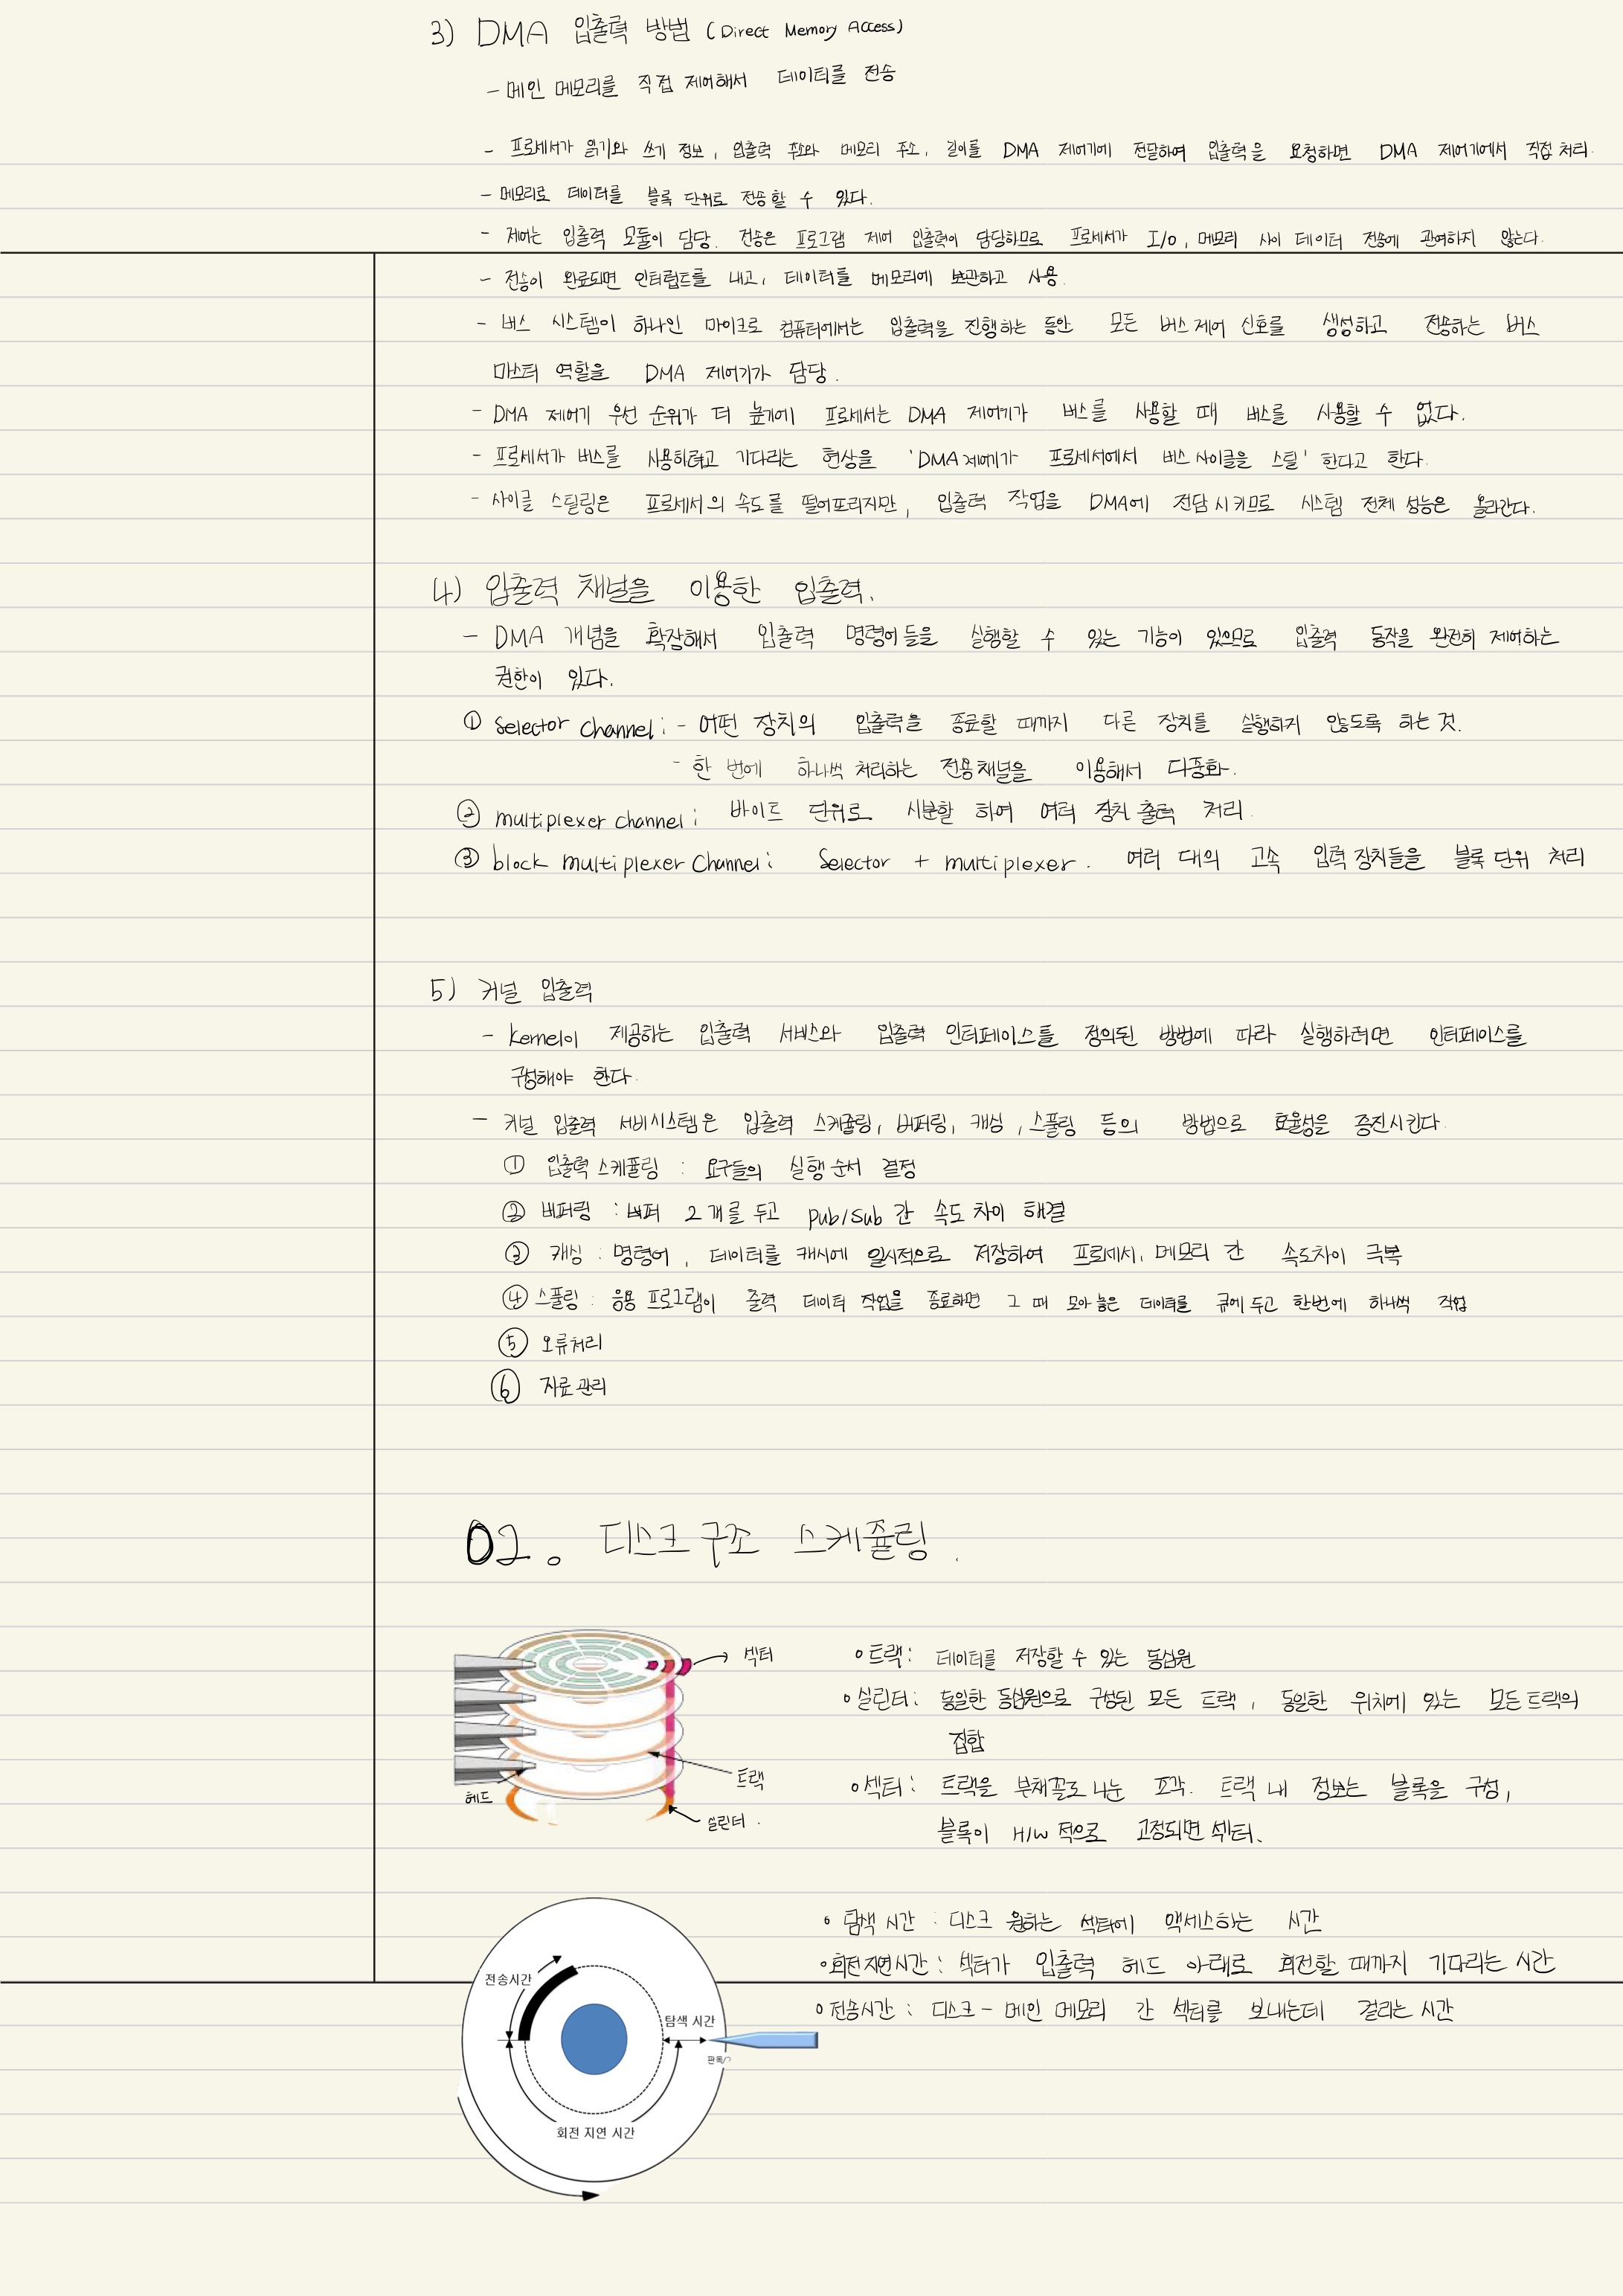 3) DMA 입출력 방법 (Direct Memory Access)
- 메인 메모리를 직접 제어해서 데이터를 전송
- 프로세서가 읽기와 쓰기 정보, 입출력 주소와 메모리 주소, 길이를 DMA 제어기에 전달하여 입출력을 요청하면 DMA 제어기에서 직접 처리.
- 메모리로 데이터를 블록 단위로 전송할 수 있다.
- 제어는 입출력 모듈이 담당. 전송은 프로그램 제어 입출력이 담당하므로 프로세서가 I/O, 메모리 사이 데이터 전송에 관여하지 않는다.
- 전송이 완료되면 인터럽트를 내고, 데이터를 메모리에 보관하고 사용.
- 버스 시스템이 하나인 마이크로 컴퓨터에서는 입출력을 진행하는 동안 모든 버스 제어 신호를 생성하고 전송하는 버스
마스터 역할을 DMA 제어기가 담당.
- DMA 제어기 우선 순위가 더 높기에 프로세서는 DMA 제어기가 버스를 사용할 때 버스를 사용할 수 없다.
- 프로세서가 버스를 사용하려고 기다리는 현상을 'DMA 제어기가 프로세서에서 버스 사이클을 스틸' 한다고 한다.
- 사이클 스틸링은 프로세서의 속도를 떨어뜨리지만, 입출력 작업을 DMA에 전담시키므로 시스템 전체 성능은 올라간다.
4) 입출력 채널을 이용한 입출력.
- DMA 개념을 확장해서 입출력 명령어들을 실행할 수 있는 기능이 있으므로 입출력 동작을 완전히 제어하는
권한이 있다.
① Selector Channel: - 어떤 장치의 입출력을 종료할 때까지 다른 장치를 실행하지 않도록 하는 것.
- 한 번에 하나씩 처리하는 전용채널을 이용해서 다중화.
② multiplexer channel: 바이트 단위로 시분할 하여 여러 장치 출력 처리.
③ block multiplexer Channel: Selector + multiplexer. 여러 대의 고속 입력 장치들을 블록 단위 처리
5) 커널 입출력
- kernel이 제공하는 입출력 서비스와 입출력 인터페이스를 정의된 방법에 따라 실행하려면 인터페이스를
구성해야 한다.
- 커널 입출력 서비시스템은 입출력 스케줄링, 버퍼링, 캐싱, 스풀링 등의 방법으로 효율성을 증진시킨다.
① 입출력 스케줄링 : 요구들의 실행 순서 결정
② 버퍼링 : 버퍼 2개를 두고 pub/sub 간 속도 차이 해결
③ 캐싱 : 명령어, 데이터를 캐시에 일시적으로 저장하여 프로세서, 메모리 간 속도차이 극복
④ 스풀링 : 응용 프로그램이 출력 데이터 작업을 종료하면 그 때 모아 놓은 데이터를 큐에 두고 한번에 하나씩 작업
⑤ 오류처리
⑥ 자료 관리
02. 디스크 구조 스케쥴링.
섹터
트랙
헤드
실린더.
∘ 트랙: 데이터를 저장할 수 있는 동심원
∘ 실린더: 동일한 동심원으로 구성된 모든 트랙, 동일한 위치에 있는 모든 트랙의
집합
∘ 섹터: 트랙을 부채꼴로 나눈 조각. 트랙 내 정보는 블록을 구성,
블록이 H/W 적으로 고정되면 섹터.
∘ 탐색 시간 : 디스크 원하는 섹터에 액세스하는 시간
∘ 회전 지연시간 : 섹터가 입출력 헤드 아래로 회전할 때까지 기다리는 시간
∘ 전송시간 : 디스크 - 메인 메모리 간 섹터를 보내는데 걸리는 시간
전송시간
탐색 시간
회전 지연 시간